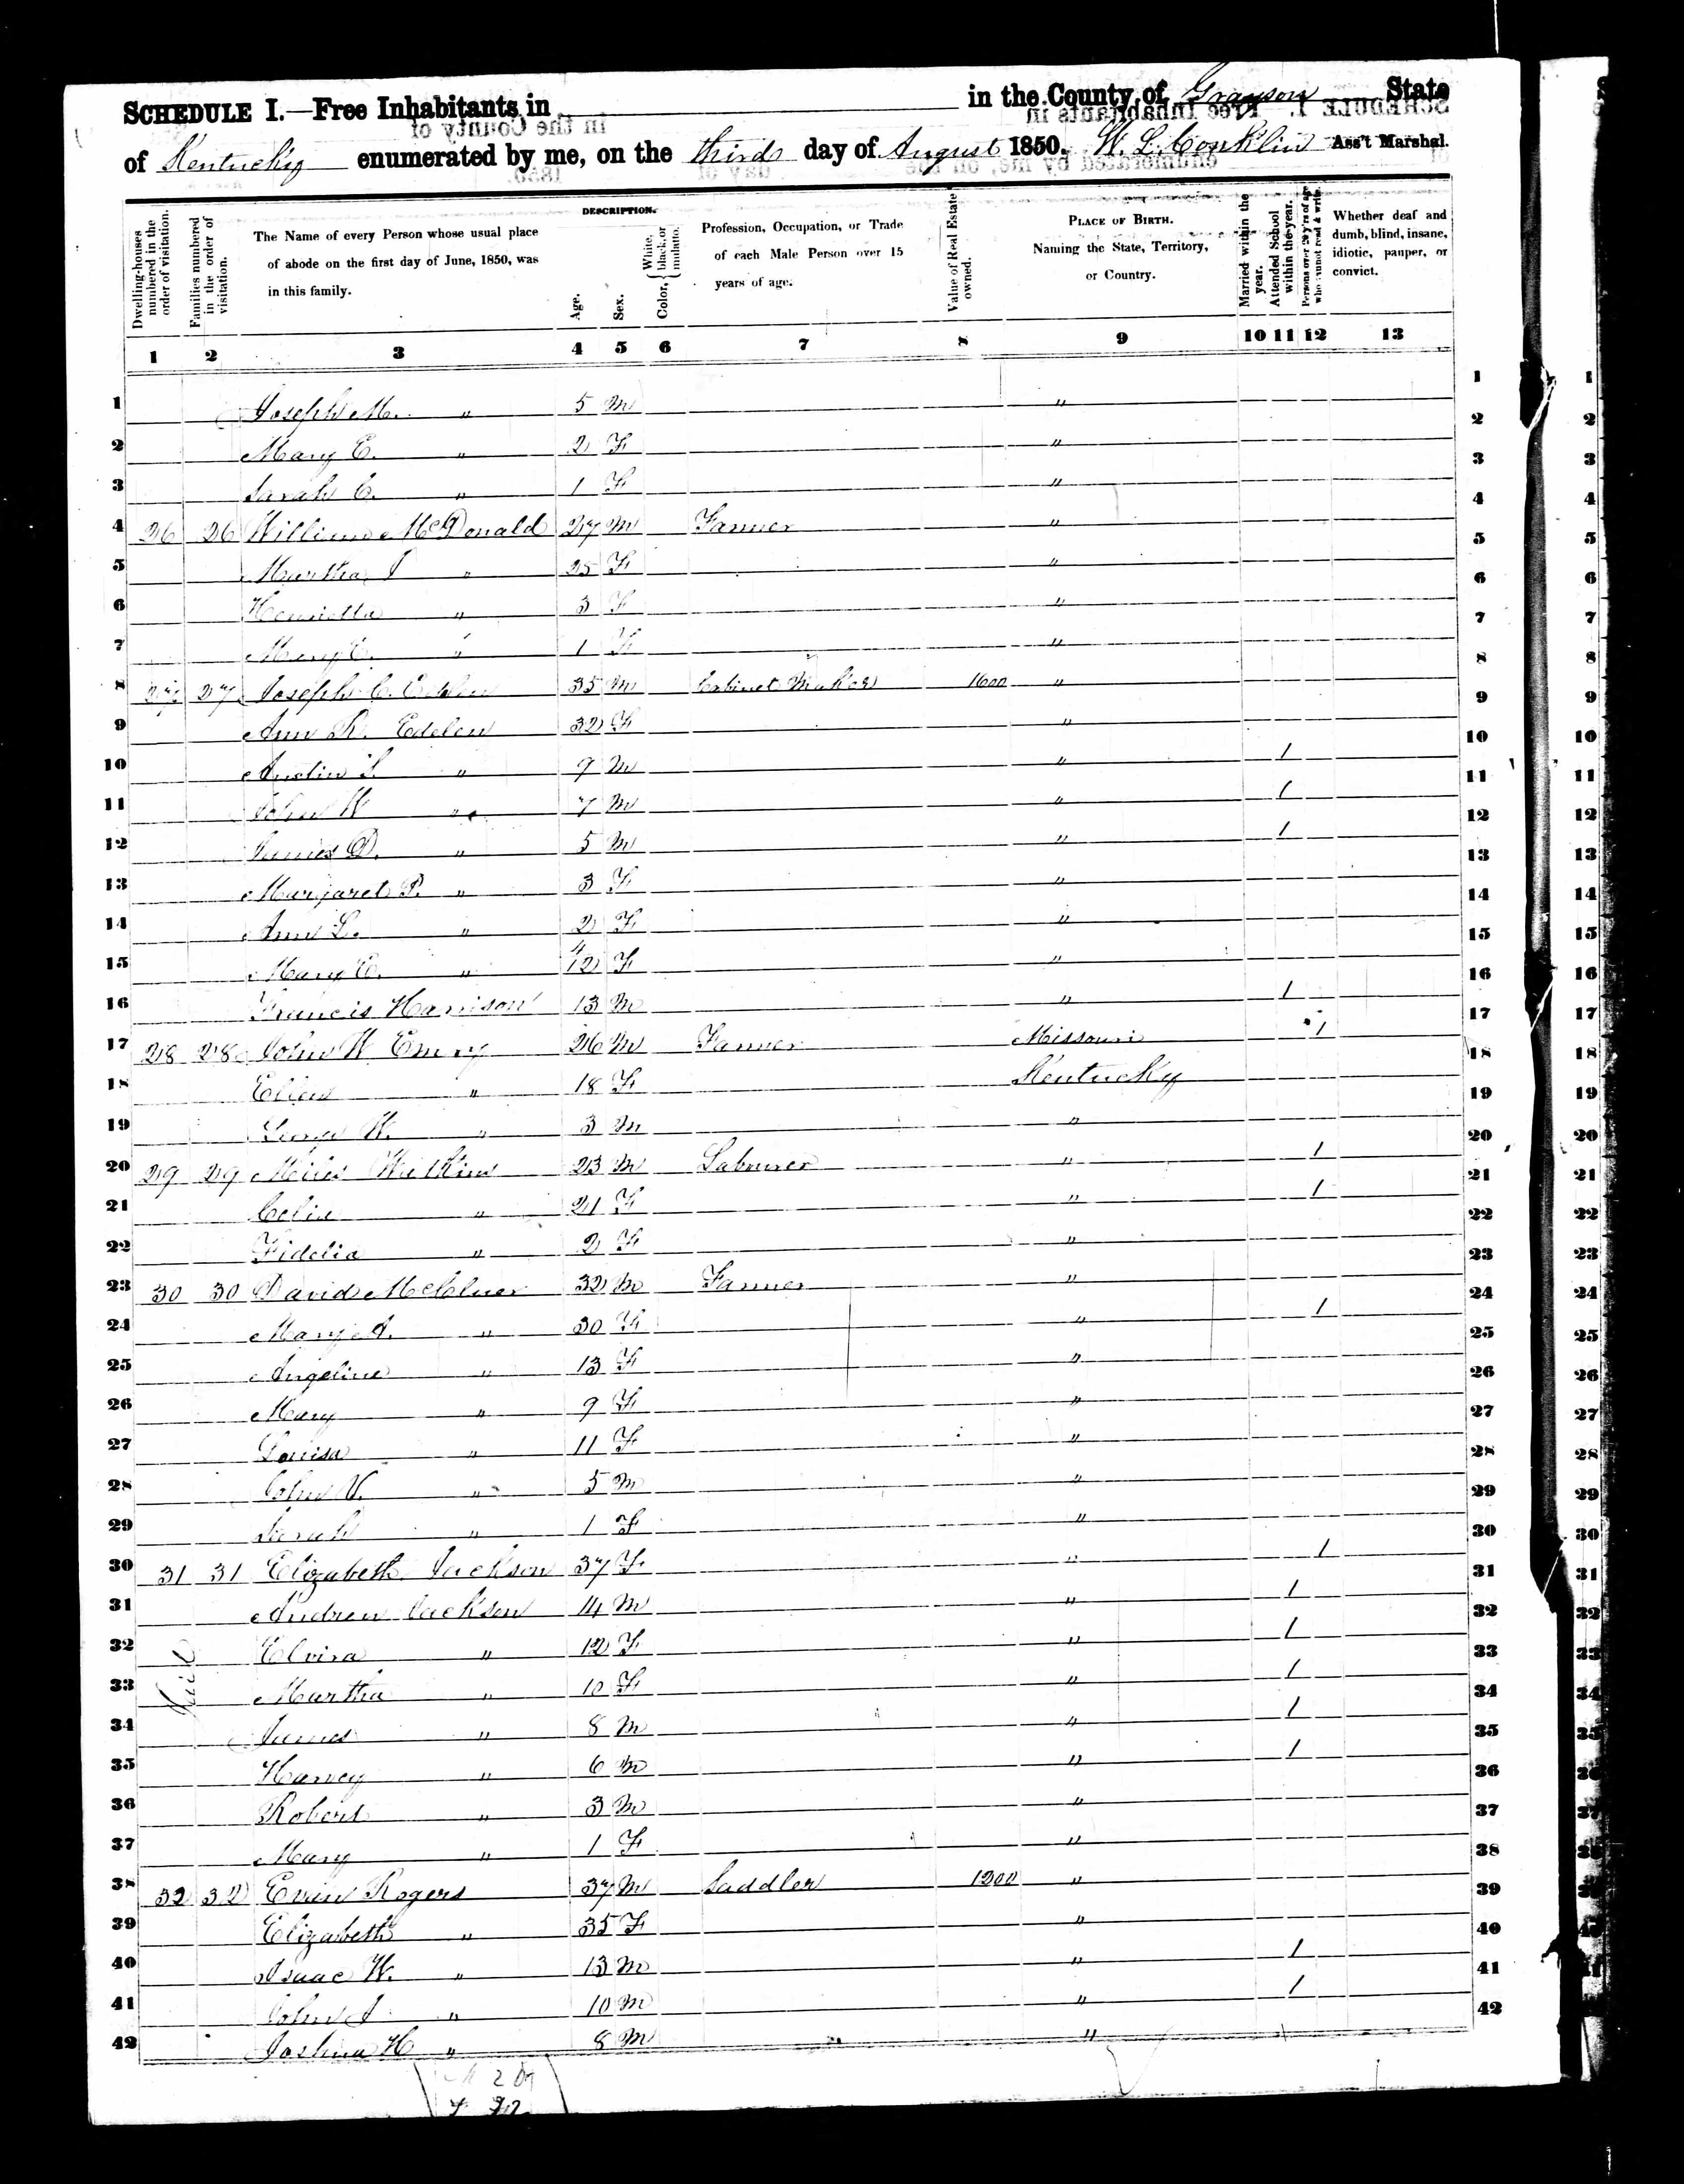 SCHEDULE I.—Free Inhabitants in in the County of Grayson State
of Kentucky enumerated by me, on the third day of August 1850. W. L. Conklin Ass't Marshal.
Dwelling-houses numbered in the order of visitation.
Families numbered in the order of visitation.
The Name of every Person whose usual place of abode on the first day of June, 1850, was in this family.
DESCRIPTION.
Age.
Sex.
Color, { White, black, or mulatto.
Profession, Occupation, or Trade of each Male Person over 15 years of age.
Value of Real Estate owned.
PLACE OF BIRTH. Naming the State, Territory, or Country.
Married within the year.
Attended School within the year.
Persons over 20 y'rs of age who cannot read & write.
Whether deaf and dumb, blind, insane, idiotic, pauper, or convict.
1 2 3 4 5 6 7 8 9 10 11 12 13
1 Joseph M. " 5 M " 1
2 Mary E. " 2 F " 2
3 Sarah C. " 1 F " 3
4 26 26 William McDonald 27 M Farmer " 4
5 Martha J " 25 F " 5
6 Henrietta " 3 F " 6
7 Mary E. " 1 F " 7
8 27 27 Joseph C. Edelen 35 M Cabinet Maker 1600 " 8
9 Ann R. Edelen 32 F " 9
10 Austin S. " 9 M " 1 10
11 John W " 7 M " 1 11
12 James D. " 5 M " 1 12
13 Margaret P. " 3 F " 13
14 Ann L. " 2 F " 14
15 Mary E. " 4/12 F " 15
16 Francis Harrison 13 M " 1 16
17 28 28 John W Emery 26 M Farmer Missouri 1 17
18 Ellen " 18 F Kentucky 18
19 George W. " 3 M " 19
20 29 29 Miles Watkins 23 M Labourer " 1 20
21 Celia " 21 F " 1 21
22 Fidelia " 2 F " 22
23 30 30 David McClure 32 M Farmer " 23
24 Mary A. " 30 F " 1 24
25 Angeline " 13 F " 25
26 Mary " 9 F " 26
27 Louisa " 11 F " 27
28 John W. " 5 M " 28
29 Sarah " 1 F " 29
30 31 31 Elizabeth Jackson 37 F " 1 30
31 Andrew Jackson 14 M " 1 31
32 Elvira " 12 F " 1 32
33 Martha " 10 F " 1 33
34 James " 8 M " 1 34
35 Harvey " 6 M " 1 35
36 Robert " 3 M " 36
37 Mary " 1 F " 37
38 32 32 Evin Rogers 37 M Saddler 1300 " 38
39 Elizabeth " 35 F " 39
40 Isaac W. " 13 M " 1 40
41 John J " 10 M " 1 41
42 Joshua H " 8 M " 42